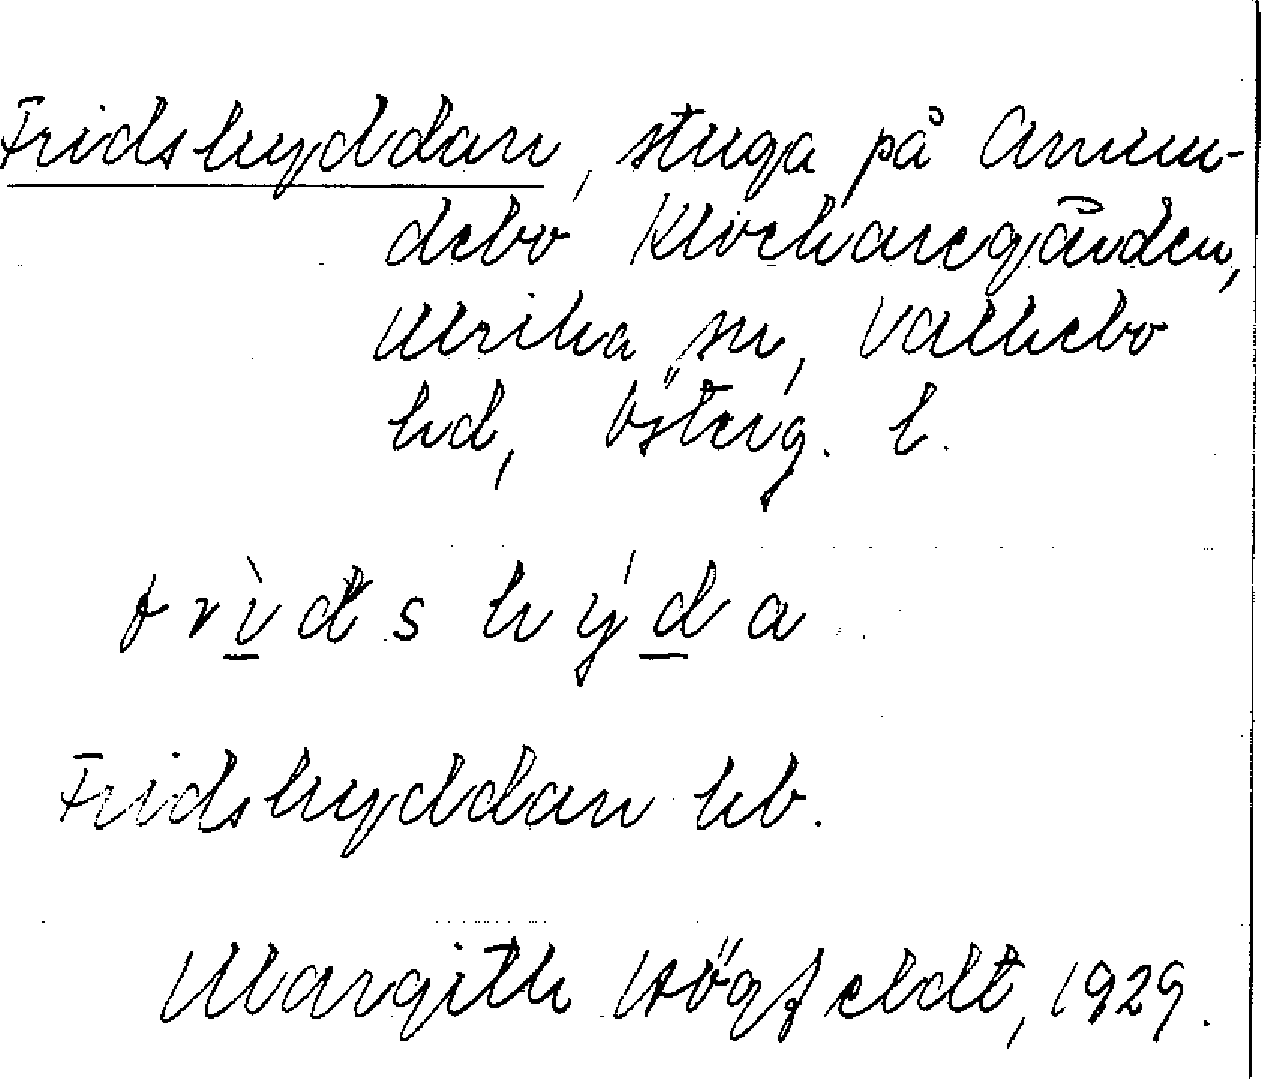 Fridshyddan, stuga på Amun-
debo Klockaregården,
Ulrika sn, Valkebo
hd, Österg. l.
frìds hýda
Fridshyddan hb.
Margith Högfeldt, 1929.